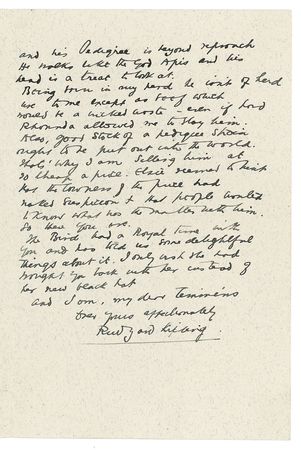 and his Pedigree is beyond reproach
He walks like the God Apis and his
head is a treat to look at.
Being born in my herd he isn't of herd
use to me except as beef which
would be a wicked waste - even if Lord
Rhondda allowed me to slay him.
Also, good stock of a pedigree strain
ought to be put out into the world.
That's why I am selling him at
so cheap a price. Elsie seemed to think
that the lowness of the price had
roused suspicion & that people wanted
to know what was the matter with him.
So there you are.
The Bird had a Royal time with
you and has told us some delightful
things about it. I only wish she had
brought you back with her instead of
her new black hat
and I am, my dear
Ever yours affectionately
Rudyard Kipling.